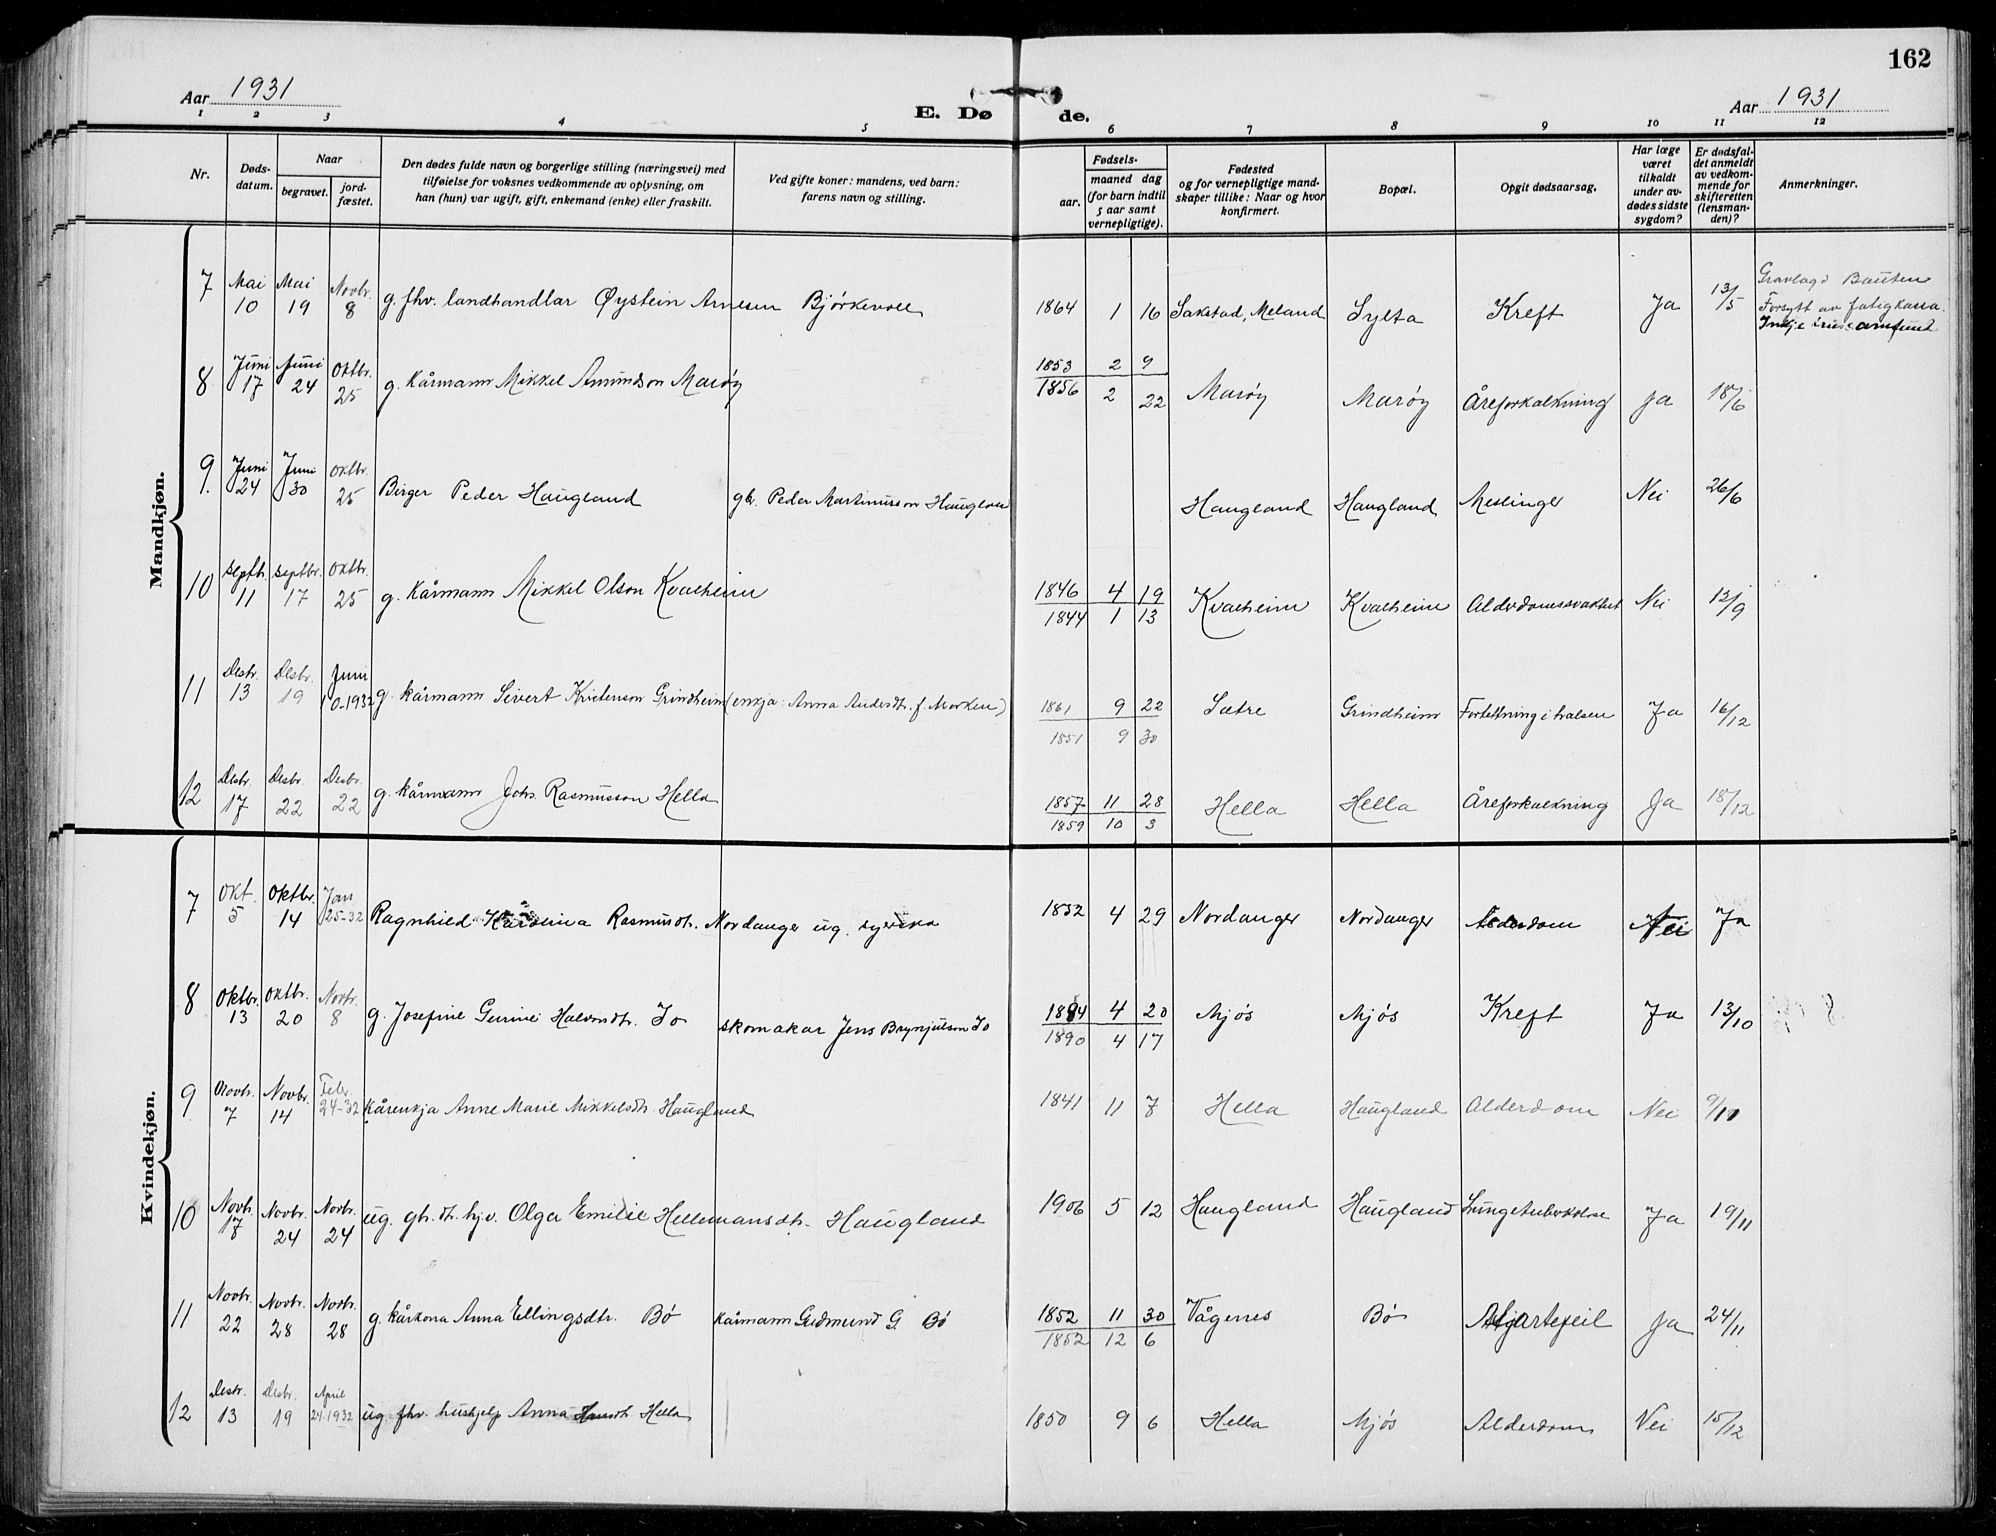 162
Aar 1931
E. Døde.
Aar 1931
1 2 3 4 5 6 7 8 9 10 11 12
Nr.
Døds-datum.
Naar
begravet.
jord-fæstet.
Den dødes fulde navn og borgerlige stilling (næringsvei) med
tilføielse for voksnes vedkommende av oplysning, om
han (hun) var ugift, gift, enkemand (enke) eller fraskilt.
Ved gifte koner: mandens, ved barn:
farens navn og stilling.
Fødsels-
aar.
maaned dag
(for barn indtil
5 aar samt
vernepligtige).
Fødested
og for vernepligtige mand-
skaper tillike: Naar og hvor
konfirmert.
Bopæl.
Opgit dødsaarsag.
Har læge
været
tilkaldt
under av-
dødes sidste
sygdom?
Er dødsfal-
det anmeldt
av vedkom-
mende for
skifteretten
(lensman-
den)?
Anmerkninger.
Mandkjøn.
7 Mai 10 Mai 19 Novbr. 8 g. fhv. landhandlar Øystein Arnesen Bjørkevoll 1864 1 16 Sakstad, Meland Sylta Kreft Ja 13/5
Forsytt av fatigkassa.
8 Juni 17 Juni 24 Oktbr. 25 g. kårmann Mikkel Amundson Marøy 1853 2 9 1856 2 22 Marøy Marøy Åreforkalkning Ja 18/6
9. Juni 24 Juni 30 Oktbr. 25 Birger Peder Haugland gb. Peder Martinusson Haugland Haugland Haugland Meslinger Nei 26/6
10 Septbr. 11 Septbr. 17 Oktbr. 25 g. kårmann Mikkel Olson Kvalheim 1846 4 19 1844 1 13 Kvalheim Kvalheim Alderdomssvakhet Nei 12/9
11 Desbr. 13 Desbr. 19 Juni 10-1932 g. kårmann Sivert Kristenson Grindheim (enkja: Anna Andersdtr. f. Morken) 1861 9 22 1851 9 30 Sætre Grindheim Fortettning i halsen Ja 16/12
12 Desbr. 17 Desbr. 22 Desbr. 22 g. kårmann Johs. Rasmusson Hella 1857 11 28 1859 10 3 Hella Hella Åreforkalkning Ja 18/12
Kvindekjøn.
7 Okt. 5 Oktbr. 14 Jan 25-32 Ragnhild Karolina Rasmusdtr. Nordanger ug. syerska 1832 4 29 Nordanger Nordanger Alderdom Nei Ja
8 Oktbr. 13 Oktbr. 20 Novbr. 8 g. Josefine Gurine Halvordtr. Io skomakar Jens Brynjulson Io 1894 4 20 1890 4 17 Mjøs Mjøs Kreft Ja 13/10
9 Novbr. 7 Novbr. 14 Febr. 24-32 kårenkja Anne Marie Mikkelsdtr. Haugland 1841 11 7 Hella Haugland Alderdom Nei 9/11
10 Novbr. 17 Novbr. 24 Novbr. 24 ug. gb. dtr. hjv. Olga Emilie Hellemansdtr. Haugland 1906 5 12 Haugland Haugland Lungetuberkulose Ja 19/11
11 Novbr. 22 Novbr. 28 Novbr. 28 g. kårkona Anna Ellingsdtr. Bø kårmann Gudmund G. Bø 1852 11 30 1852 12 6 Vågenes Bø Hjartefeil Ja 24/11
12 Desbr. 13 Desbr. 19 April 24-1932 ug. fhv. hushjelp Anna Hansdtr. Hella 1850 9 6 Hella Mjøs Alderdom Nei 15/12